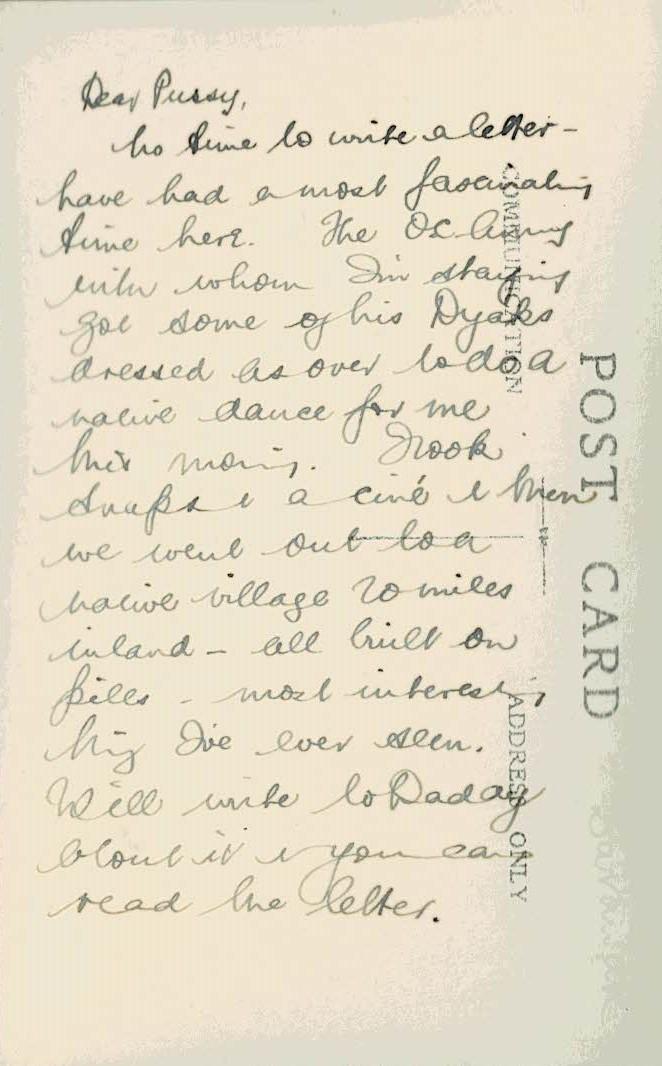 Dear Pussy,
No time to write a letter -
have had a most fascinating
time here. The OC Army
with whom I'm staying
got some of his Dyaks
dressed as over to do a
native dance for me
this morning. I took
snaps & a ciné & then
we went out to a
native village 20 miles
inland - all built on
piles - most interesting
thing I've ever seen.
Will write to Daddy
about it & you can
read the letter.
COMMUNICATION
ADDRESS ONLY
POST CARD